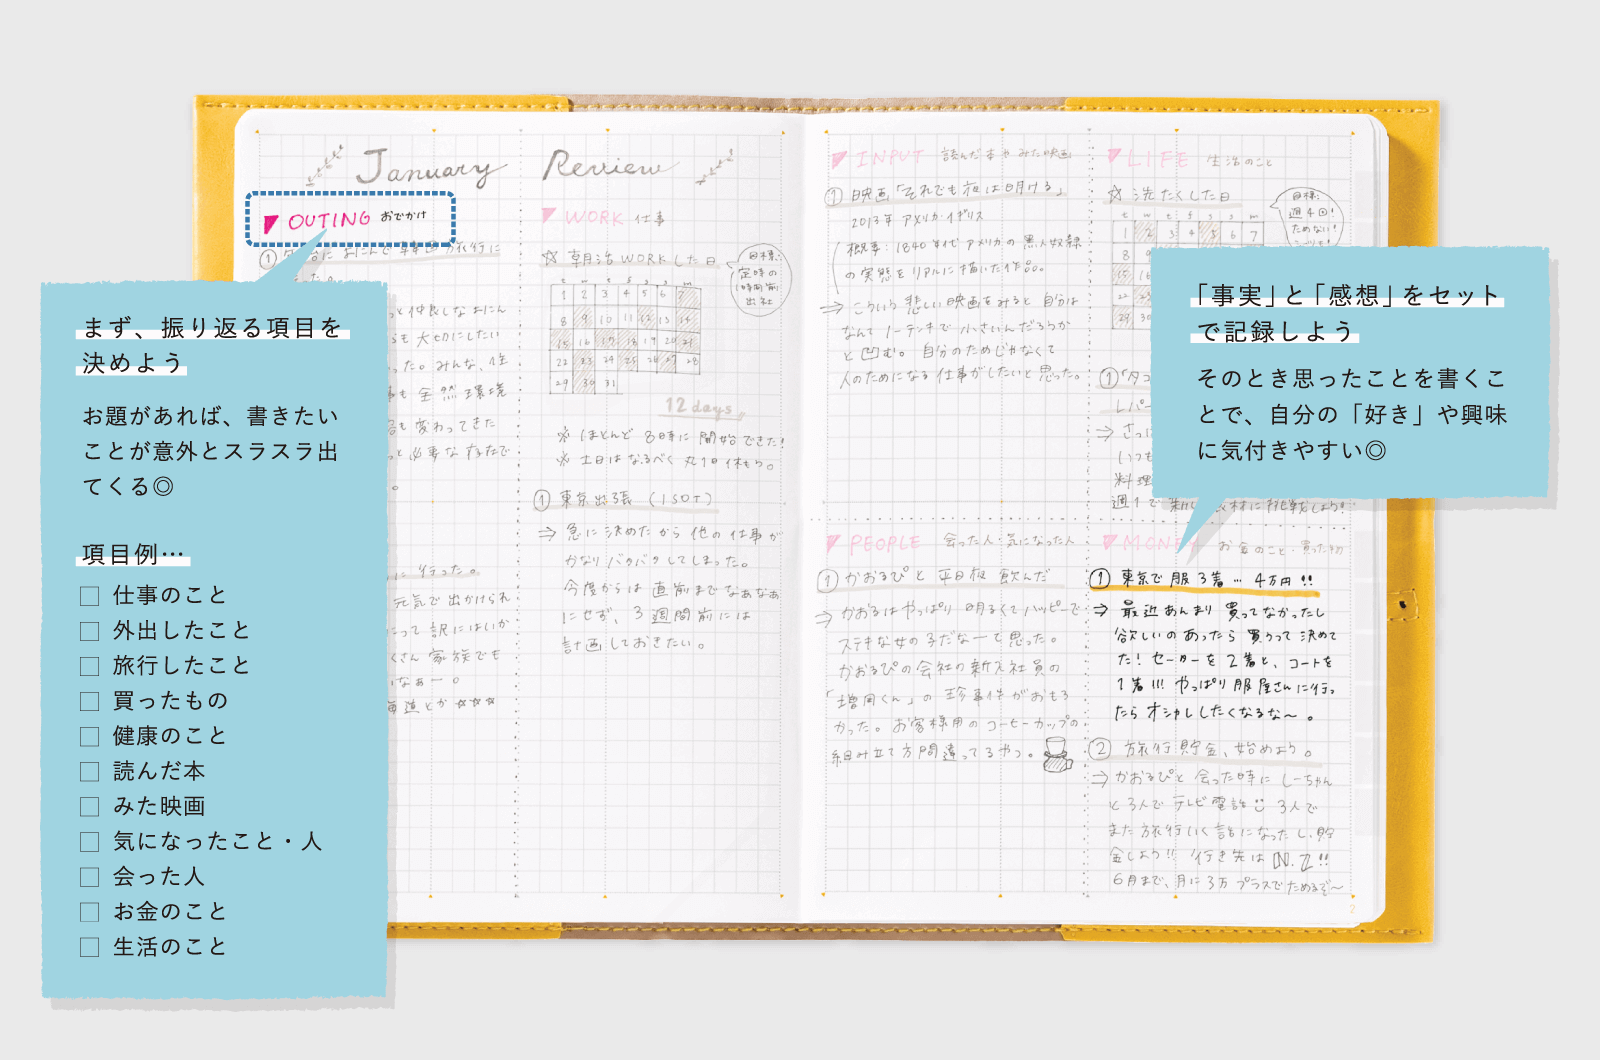 January Review
OUTING おでかけ
まず、振り返る項目を
決めよう
お題があれば、書きたい
ことが意外とスラスラ出
てくる◎
項目例…
仕事のこと
外出したこと
旅行したこと
買ったもの
健康のこと
読んだ本
みた映画
気になったこと・人
会った人
お金のこと
生活のこと
と仲良しなおにん
も大切にしたい
った。みんな、住
も全然環境
も変わってきた
と必要な存在で
に行った。
元気で出かけられ
って訳にはいか
くさん家族でも
いなぁー。
WORK 仕事
☆ 朝活WORKした日
目標:
定時の
1時間前
出社
t f s s m
1 2 3 4 5 6 7
8 9 10 11 12 13 14
15 16 17 18 19 20 21
22 23 24 25 26 27 28
29 30 31
12 days
※ ほとんど 8時に開始できた!
※ 土日はなるべく丸1日休もう。
① 東京出張 (ISOT)
⇒ 急に決めたから他の仕事が
かなりバタバタしてしまった。
今度からは直前までなぁなぁ
にせず、3週間前には
計画しておきたい。
INPUT 読んだ本やみた映画
① 映画「それでも夜は明ける」
2013年 アメリカ・イギリス
概要:1840年代アメリカの黒人奴隷
の実態をリアルに描いた作品。
⇒ こういう悲しい映画をみると自分は
なんてノーテンキで小さいんだろうか
と凹む。自分のためじゃなくて
人のためになる仕事がしたいと思った。
PEOPLE 会った人・気になった人
① かおるぴと平日夜飲んだ
⇒ かおるはやっぱり明るくてハッピーで
ステキな女の子だなーて思った。
かおるぴの会社の新入社員の
「増岡くん」の珍事件がおもろ
かった。お客様用のコーヒーカップの
組み立て方間違ってるやつ。
LIFE 生活のこと
☆ 洗たくした日
目標:
週4回!
ためない!
t w t f s s m
1 2 3 4 5 6 7
8 9
15 16
22 23
29 30
「事実」と「感想」をセット
で記録しよう
そのとき思ったことを書くこ
とで、自分の「好き」や興味
に気付きやすい◎
MONEY お金のこと・買った物
① 東京で服3着… 4万円!!
⇒ 最近あんまり買ってなかったし
欲しいのあったら買うって決めて
た! セーターを2着と、コートを
1着!!! やっぱり服屋さんに行っ
たらオシャレしたくなるな〜。
② 旅行貯金、始めよう。
⇒ かおるぴと会った時にしーちゃん
と3人でテレビ電話 3人で
また旅行いく話になったし、貯
金しよう!! 行き先はN.Z!!
6月まで、月に3万プラスでためるぞ〜
2